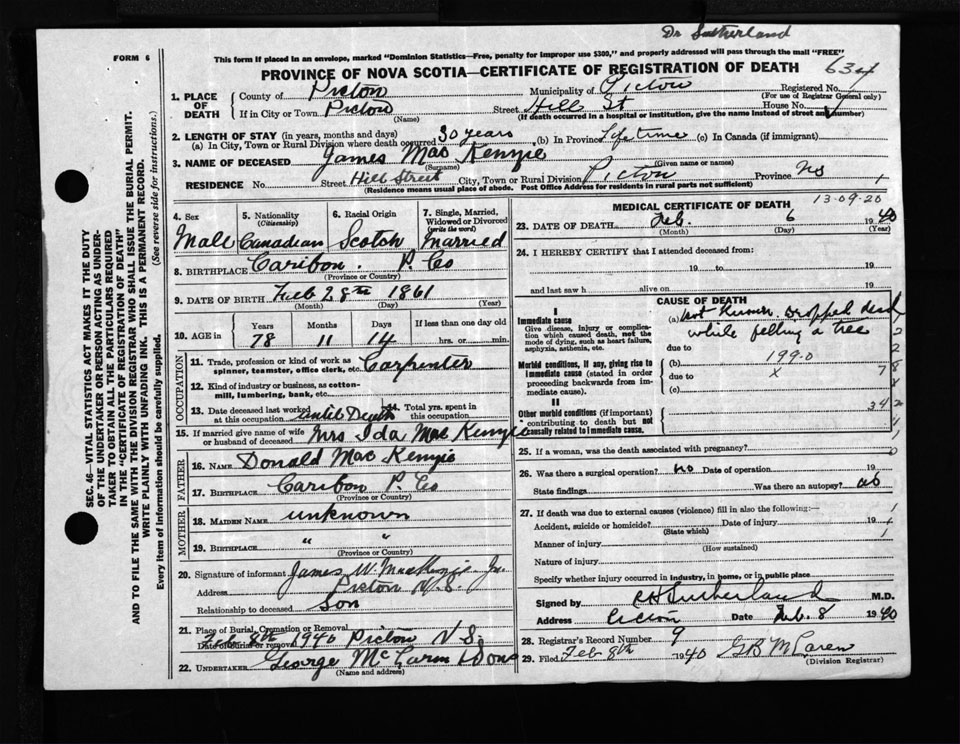 Dr Sutherland
FORM 6
This form if placed in an envelope, marked "Dominion Statistics—Free, penalty for improper use $300," and properly addressed will pass through the mail "FREE"
PROVINCE OF NOVA SCOTIA—CERTIFICATE OF REGISTRATION OF DEATH
634
SEC. 46—VITAL STATISTICS ACT MAKES IT THE DUTY
OF THE UNDERTAKER OR PERSON ACTING AS UNDER-
TAKER TO OBTAIN ALL THE PARTICULARS REQUIRED
IN THE "CERTIFICATE OF REGISTRATION OF DEATH"
AND TO FILE THE SAME WITH THE DIVISION REGISTRAR WHO SHALL ISSUE THE BURIAL PERMIT.
WRITE PLAINLY WITH UNFADING INK. THIS IS A PERMANENT RECORD.
Every item of information should be carefully supplied. (See reverse side for instructions.)
1. PLACE OF DEATH
County of Pictou Municipality of Pictou Registered No.
(For use of Registrar General only)
If in City or Town Pictou Street Hill St House No.
(Name) (If death occurred in a hospital or institution, give the name instead of street and number)
2. LENGTH OF STAY (in years, months and days)
(a) In City, Town or Rural Division where death occurred 30 years (b) In Province Life time (c) In Canada (if immigrant)
3. NAME OF DECEASED James Mac Kenzie
(Surname) (Given name or names)
RESIDENCE No. Street Hill Street City, Town or Rural Division Pictou Province NS 1
(Residence means usual place of abode. Post Office Address for residents in rural parts not sufficient)
13-09-20
4. Sex 5. Nationality (Citizenship) 6. Racial Origin 7. Single, Married, Widowed or Divorced (write the word)
Male Canadian Scotch Married
8. BIRTHPLACE Caribou. P. Co
(Province or Country)
9. DATE OF BIRTH Feb 28th 1861
(Month) (Day) (Year)
10. AGE in Years Months Days If less than one day old
78 11 14 hrs. or min.
OCCUPATION
11. Trade, profession or kind of work as spinner, teamster, office clerk, etc. Carpenter
12. Kind of industry or business, as cotton-mill, lumbering, bank, etc.
13. Date deceased last worked at this occupation until Death 14. Total yrs. spent in this occupation
15. If married give name of wife or husband of deceased Mrs Ida Mac Kenzie
FATHER
16. NAME Donald Mac Kenzie
17. BIRTHPLACE Caribou P. Co
(Province or Country)
MOTHER
18. MAIDEN NAME unknown
19. BIRTHPLACE " "
(Province or Country)
20. Signature of informant James W. MacKenzie Jr.
Address Pictou N.S.
Relationship to deceased Son
21. Place of Burial, Cremation or Removal
Date of burial or removal Feb 8th 1940 Pictou N.S.
22. UNDERTAKER George McLaren & Sons
(Name and address)
MEDICAL CERTIFICATE OF DEATH
23. DATE OF DEATH Feb. 6 1940
(Month) (Day) (Year)
24. I HEREBY CERTIFY that I attended deceased from:
19 to 19
and last saw h alive on 19
CAUSE OF DEATH
I
Immediate cause
Give disease, injury or complication which caused death, not the mode of dying, such as heart failure, asphyxia, asthenia, etc.
(a) Not Known. Dropped dead
while felling a tree
due to
Morbid conditions, if any, giving rise to immediate cause (stated in order proceeding backwards from immediate cause).
(b) 199.0
due to x
(c)
II
Other morbid conditions (if important) contributing to death but not causally related to immediate cause.
25. If a woman, was the death associated with pregnancy?
26. Was there a surgical operation? no Date of operation 19
State findings Was there an autopsy? no
27. If death was due to external causes (violence) fill in also the following:—
Accident, suicide or homicide? Date of injury 19
(State which)
Manner of injury
(How sustained)
Nature of injury
Specify whether injury occurred in industry, in home, or in public place
Signed by Sutherland M.D.
Address Pictou Date Feb. 8 1940
28. Registrar's Record Number 9
29. Filed Feb 8th 1940 GB McLaren
(Division Registrar)